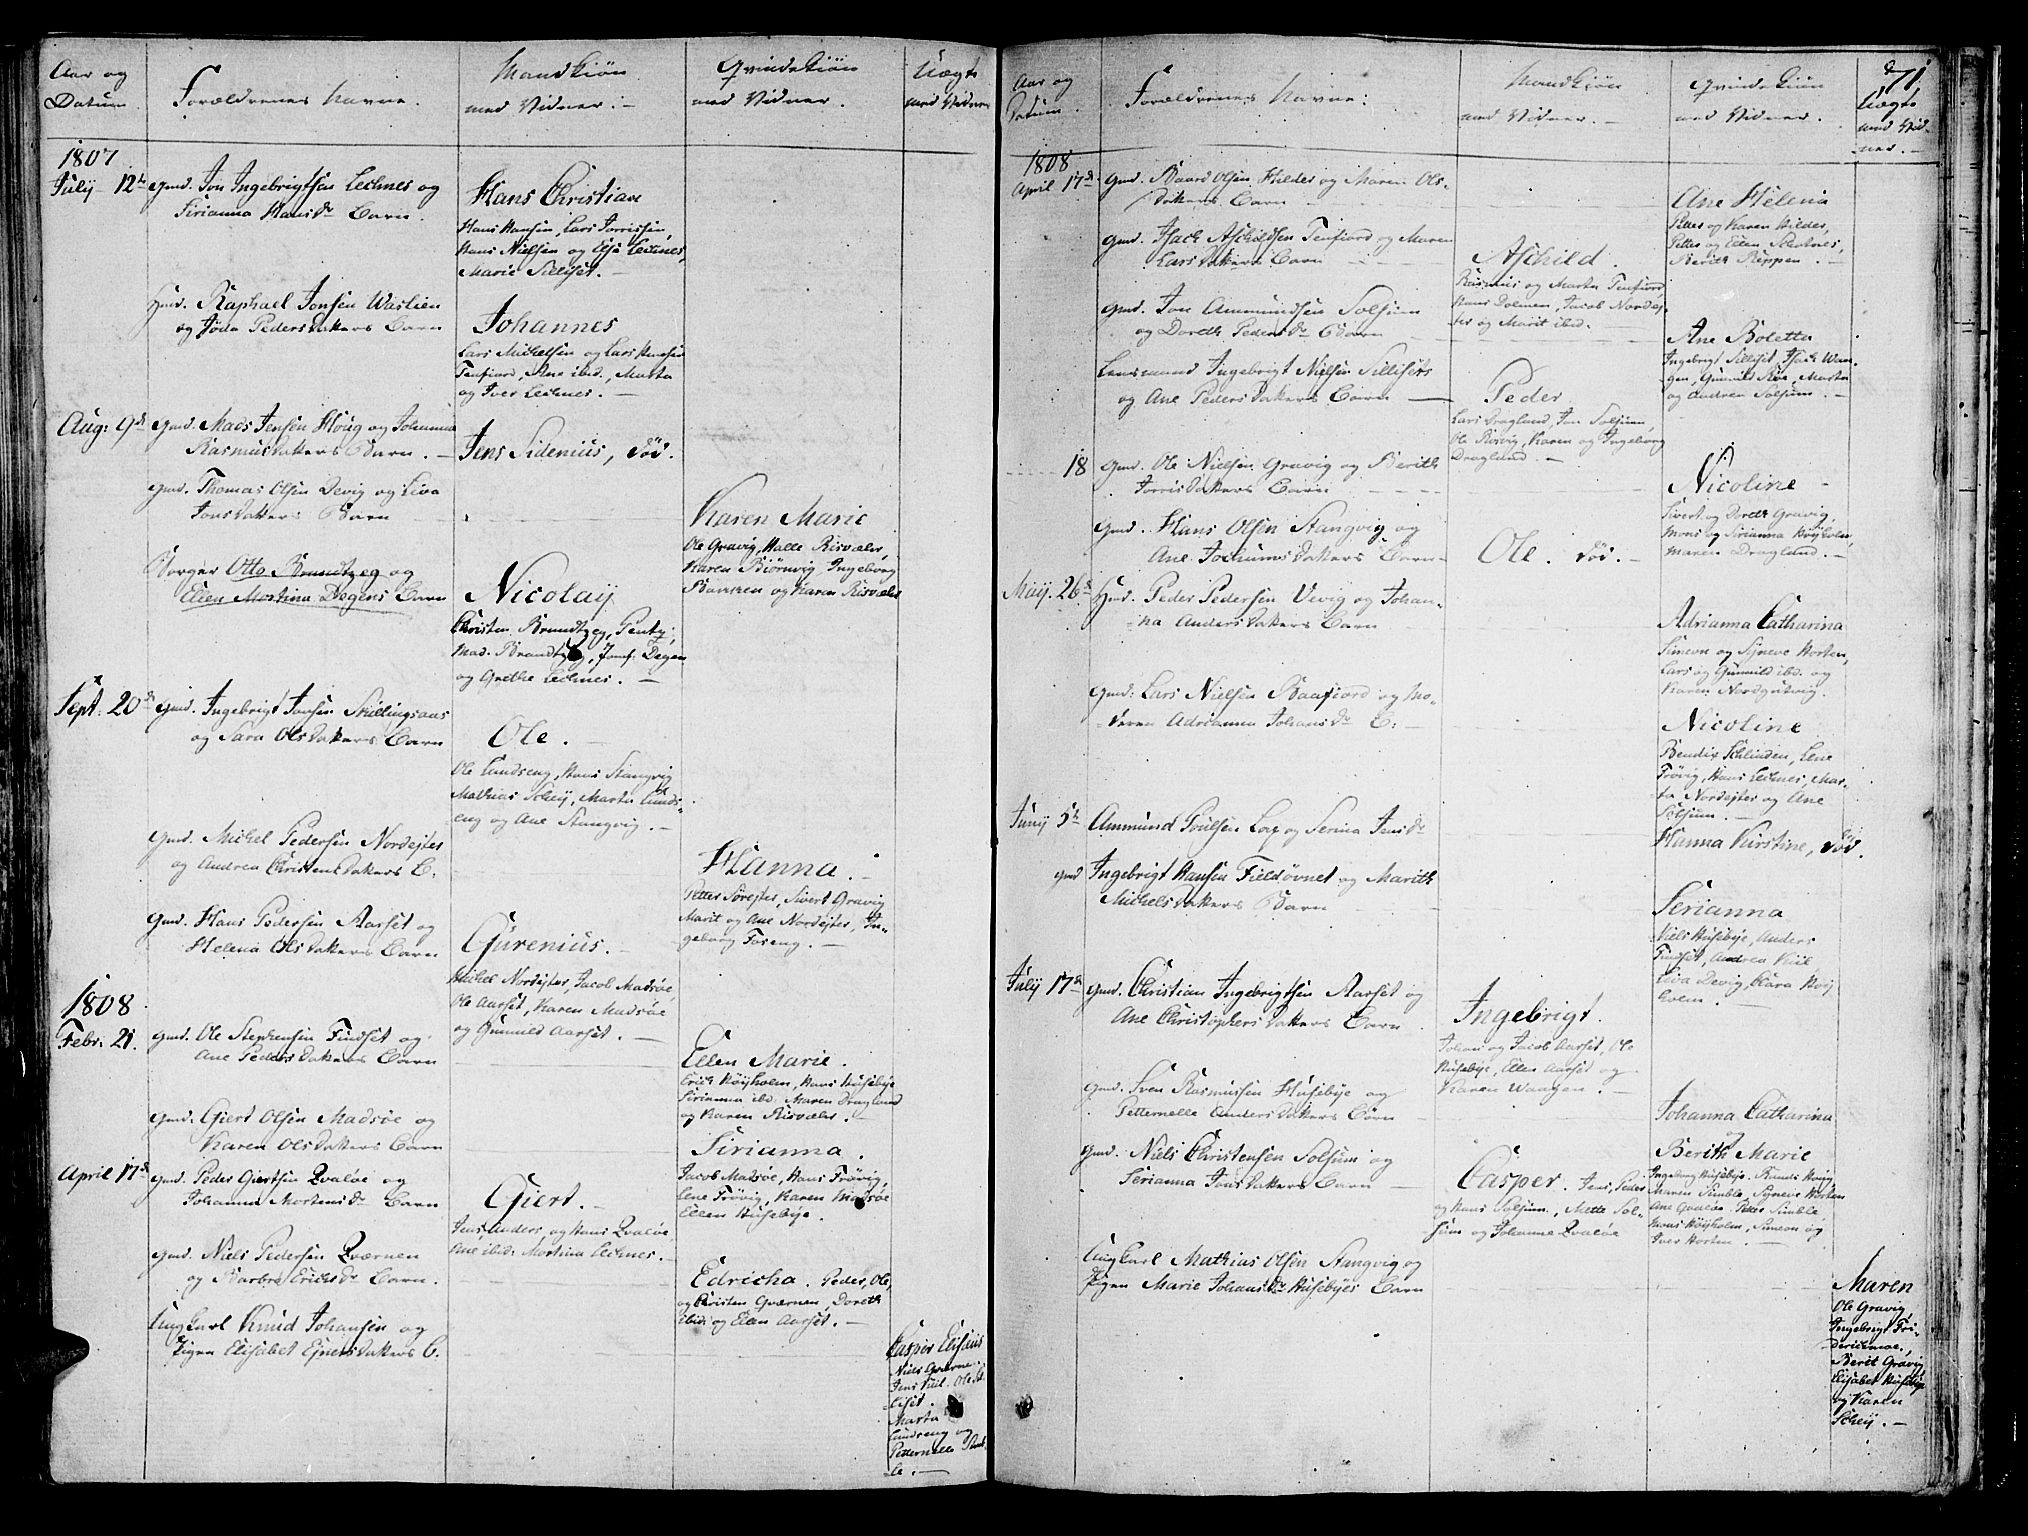 Aar og Datum
Forældrenes Navne.
Mandkiön med Vidner :-
Qvindekiön med Vidner.
Uægte med Vidner
1807
July 12te Gmd. Jon Ingebrigtsen Lechnes og
Sirianna Hansdr Barn.
Hans Christian
Hans Hansen, Lars Torrissen,
Hans Nielsen og Else Lechnes,
Marie Selliset. -
Hmd. Raphael Jonsen Wastien
og Jøda Pedersdatters Barn
Johannes
Lars Michelsen og Lars Hansen
Tenfiord, Ane ibid., Marta
og Iver Lechnes. -
Aug: 9de Gmd. Mads Jensen Houg og Johanna
Rasmusdatters Barn. -
Jens Sidenius, död.
Gmd. Thomas Olsen Devig og Liva
Jonsdatters Barn
Karen Marie
Ole Gravig, Halle Risvæler,
Karen Biørnvig, Ingeborg
Bakken og Karen Risvæler
Borger Otto Brandtzeg og
Ellen Martina Degens Barn
Nicolay
Christen Brandtzeg, Penty,
Mad. Brandtzeg, Jomf. Degen
og Grethe Lechnes. -
Sept: 20de Gmd. Ingebrigt Jonsen Skillingsaas
og Sara Olsdatters Barn
Ole. -
Ole Lundseng, Hans Stangvig
Mathias Scheij, Marta Lunds-
eng og Ane Stangvig. -
Gmd. Michel Pedersen Nordejter
og Andrea Christensdatters B:
Hanna. -
Petter Sørejter, Sivert Gravig
Marit og Ane Nordejter, In-
geborg Foseng. -
Gmd. Hans Pedersen Aarset og
Helena Olsdatters Barn
Gurenius. -
Michel Nordejter, Jacob Madsøe,
Ole Aarset, Karen Madsøe
og Gunnild Aarset. -
1808
Febr: 21. Gmd. Ole Stephensen Findset og
Ane Pedersdatters Barn
Ellen Marie.
Erich Höijholm, Hans Husebye
Sirianna ibd. Maren Dragland
og Karen Risvæler.
Gmd. Giert Olsen Madsøe og
Karen Olsdatters Barn
Sirianna.
Jacob Madsøe, Hans Trøvig,
Lene Trøvig, Karen Madsøe
Ellen Husebye.
April 17de Gmd. Peder Giertsen Qvaløe og
Johanna Mortensdr Barn
Giert. -
Jens, Anders, og Hans Qvaløe,
Ane ibid: Martina Lechnes.
Gmd. Niels Pedersen Qværnen
og Barbra Erichsdr Barn.
Edricka. Peder, Ole,
og Christen Qværnen, Doreth
ibid: og Elen Aarset. -
Ungkarl Knud Johansen og
Pigen Elisabet Ejnersdatters B.
Casper Elisæus
Niels Qværne.
Jens Kiil. Ole Sel-
liset.
Marta
Lundseng og
Petternelle
le. -
71
Aar og Datum
Forældrenes Navne:
Mandkiön med Vidner. -
Qvindekiön med Vidner.
Uægte med Vidner. -
1808
April 17de Gmd. Baard Olsen Hilder og Maren Ols-
datters Barn
Ane Helena
Petter og Karen Hilder,
Petter og Ellen Schotnes,
Berith Reppen. -
Gmd. Isach Aschildsen Tenfiord og Maren
Larsdatters Barn
Aschild.
Rasmus og Marta Tenfiord,
Hans Dolmen, Jacob Nordej-
ter og Marit ibid.
Gmd. Jon Ammundsen Solsum
og Doreth Pedersdr Barn
Ane Boletta
Ingebrigt Selliset, Isach Waa-
gen, Gunnild Røe, Marta
og Andrea Solsum. -
Lensmand Ingebrigt Nielsen Sellisets
og Ane Pedersdatters Barn
Peder
Lars Dragland, Jon Solsum,
Ole Rosvig, Karen og Ingeborg
Dragland. -
18 Gmd. Ole Nielsen Gravig og Berith
Torrisdatters Barn
Nicoline
Sivert og Doreth Gravig,
Mons og Sirianna Höijholm,
Maren Dragland. -
Gmd. Hans Olsen Stangvig og
Ane Jochumsdatters Barn
Ole. död. -
Maij. 26de Hmd. Peder Pedersen Vevig og Johan-
na Andersdatters Barn
Adrianna Catharina
Simeon og Synneve Horten,
Lars og Gunnild ibd. og
Karen Nordgutvig.
Gmd: Lars Nielsen Baafiord og Mo-
deren Adrianna Johansdr B:
Nicoline
Bendix Schlinden, Lene
Trøvig, Hans Lechnes, Mar-
ta Nordejter og Ane
Solsum. -
Junij 5te Ammund Poulsen Lox og Serina Jensdr
Hanna Kirstine, död.
Gmd Ingebrigt Hansen Fieldøvnet og Marith
Michelsdatters Barn
Serianna
Niels Husebye, Anders
Findset, Andrea Kiil
Liva Devig, Kara Höij
holm. -
Julij 17de Gmd. Christian Ingebrigtsen Aarset og
Ane Christophersdatters Barn
Ingebrigt.
Johan og Jacob Aarset, Ole
Husebye, Ellen Aarset og
Karen Waagen. -
Gmd. Sven Rasmussen Husebye og
Petternelle Andersdatters Börn
Johanna Catharina
og
Berith Marie
Ingeborg Husebye. Trands Höijg
Maren Simble, Synneve Horten
Ane Qvaløe. Petter Simble,
Mons Höijholm, Simeon og
Iver Horten. -
Gmd. Niels Christensen Solsum og
Serianna Jonsdatters Barn
Casper. Jens, Peder
og Hans Solsum, Mette Sol-
sum og Johanna Qvaløe
Ungkarl Mathias Olsen Stangvig og
Pigen Marie Johansdr Husebyes Barn
Maren
Ole Gravig,
Ingebrigt Fri-
derichmoe,
Berit Gravig,
Elisabet Husebye
og Karen
Scheij. -